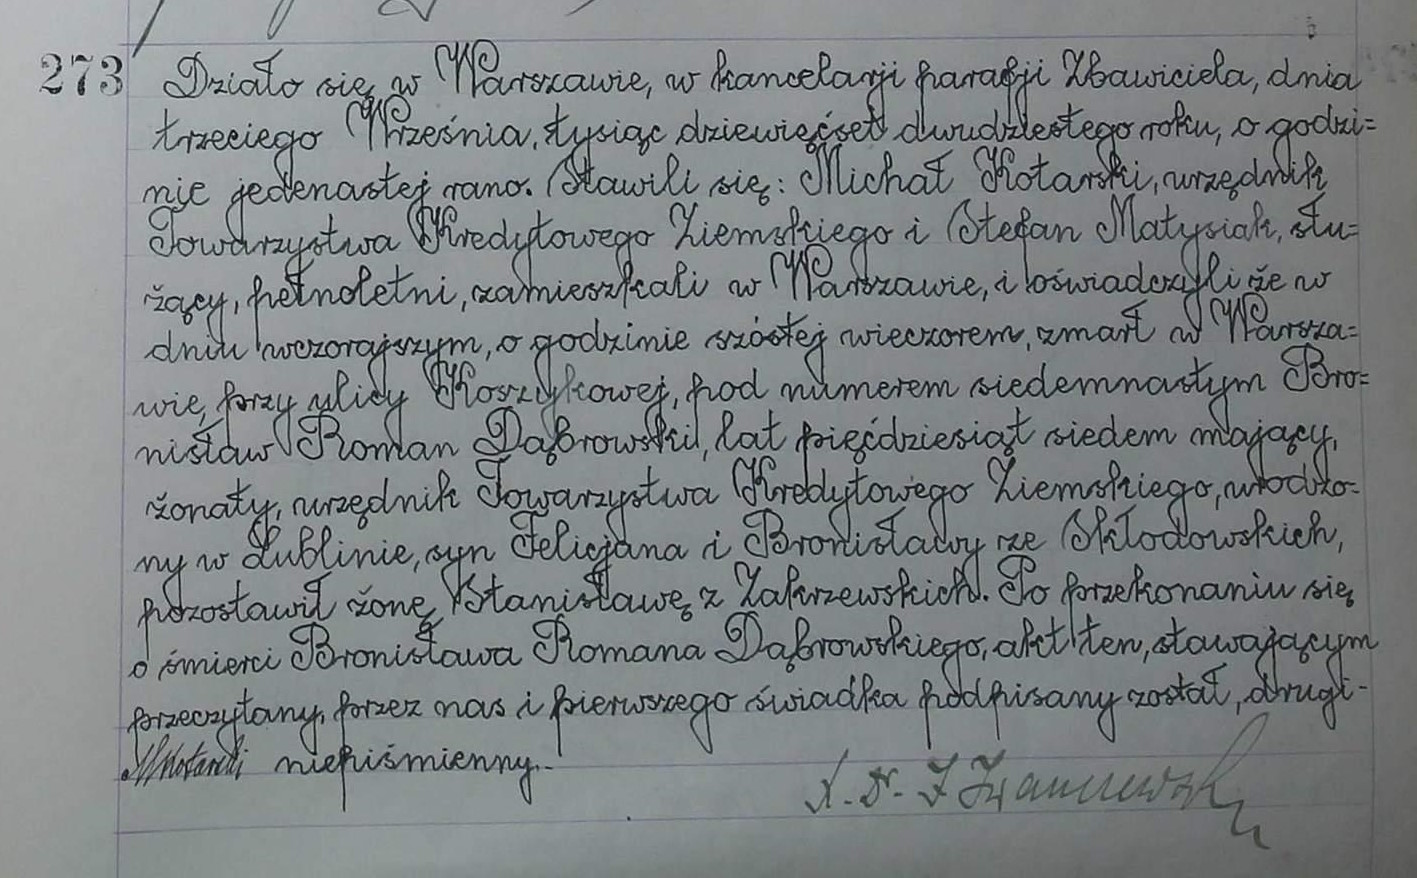 273 Działo się w Warszawie, w kancelarji parafji Zbawiciela, dnia
trzeciego Września, tysiąc dziewięćset dwudziestego roku, o godzi=
nie jedenastej rano. Stawili się: Michał Kotarski, urzędnik
Towarzystwa Kredytowego Ziemskiego i Stefan Matysiak, słu=
żący, pełnoletni, zamieszkali w Warszawie, i oświadczyli że w
dniu wczorajszym, o godzinie szóstej wieczorem, zmarł w Warsza=
wie, przy ulicy Koszykowej, pod numerem siedemnastym Bro=
nisław Roman Dąbrowski, lat pięćdziesiąt siedem mający,
żonaty, urzędnik Towarzystwa Kredytowego Ziemskiego, urodzo-
ny w Lublinie, syn Felicjana i Bronisławy ze Skłodowskich,
pozostawił żonę Stanisławę z Zakrzewskich. Po przekonaniu się
o śmierci Bronisława Romana Dąbrowskiego, akt ten, stawającym
przeczytany, przez nas i pierwszego świadka podpisany został, drugi-
MKotarski niepiśmienny.-
X. Dr.